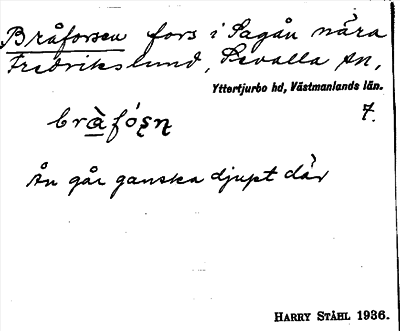 Bråforsen fors i Sagån nära
Fredrikslund, Sevalla sn,
Yttertjurbo hd, Västmanlands län.
7.
bràfó
Ån går ganska djupt där
HARRY STÅHL 1936.